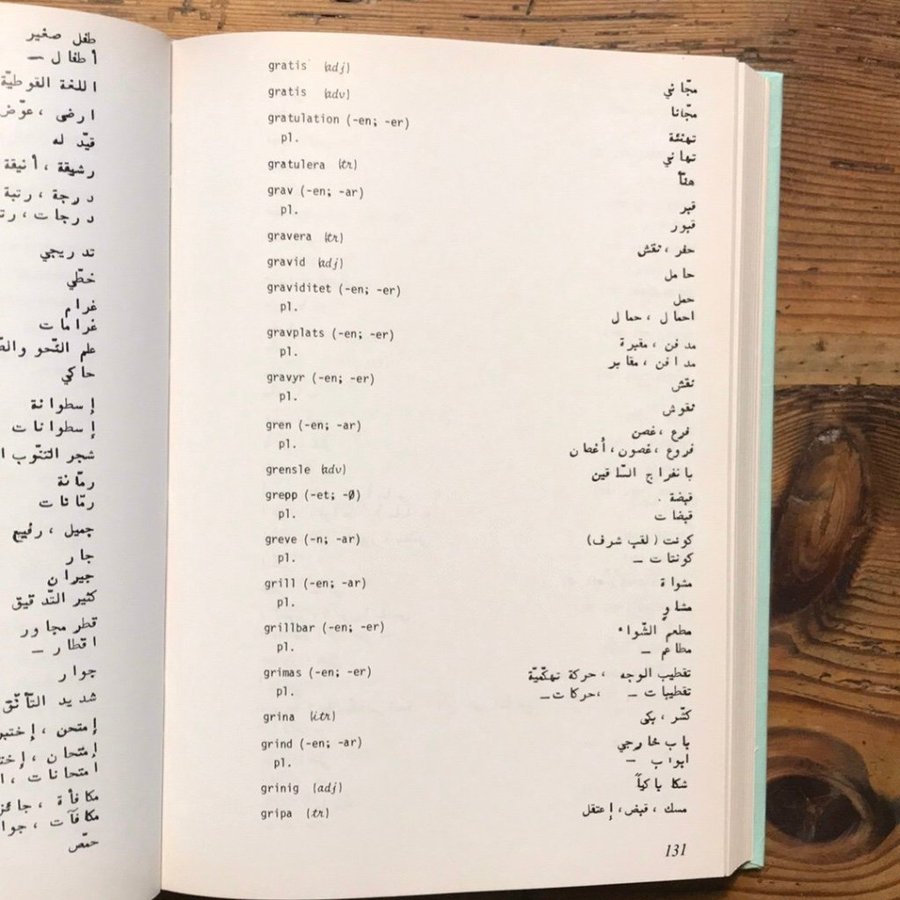 طفل صغير
أطفال —
اللغة القوطيّة
ارضى ، عوّض
قيّد له
رشيقة ، أنيقة
درجة ، رتبة
درجات ،
تدريجي
خطّي
غرام
غرامات
علم النّحو
حاكي
إسطوانة
إسطوانات
شجر التنّوب
رمّانة
رمّانات
جميل ، رفيع
جار
جيران
كثير التّدقيق
قطر مجاور
اقطار —
جوار
شديد التأنّق
إمتحن ،
إمتحان ،
امتحانات ،
مكافأة ،
مكافآت ،
حمّص
gratis (adj) مجّاني
gratis (adv) مجّانا
gratulation (-en; -er) تهنئة
pl. تهاني
gratulera (tr) هنّأ
grav (-en; -ar) قبر
pl. قبور
gravera (tr) حفر ، نقش
gravid (adj) حامل
graviditet (-en; -er) حمل
pl. احمال ، حمال
gravplats (-en; -er) مدفن ، مقبرة
pl. مدافن ، مقابر
gravyr (-en; -er) نقش
pl. نقوش
gren (-en; -ar) فرع ، غصن
pl. فروع ، غصون ، أغصان
grensle (adv) بانفراج السّاقين
grepp (-et; -Ø) قبضة
pl. قبضات
greve (-n; -ar) كونت (لقب شرف)
pl. كونتات —
grill (-en; -ar) مشواة
pl. مشاوٍ
grillbar (-en; -er) مطعم الشّواء
pl. مطاعم —
grimas (-en; -er) تقطيب الوجه ، حركة تهكّميّة
pl. تقطيبات — ، حركات —
grina (itr) كشّر ، بكى
grind (-en; -ar) باب خارجي
pl. ابواب —
grinig (adj) شكا باكياً
gripa (tr) مسك ، قبض ، إعتقل
131